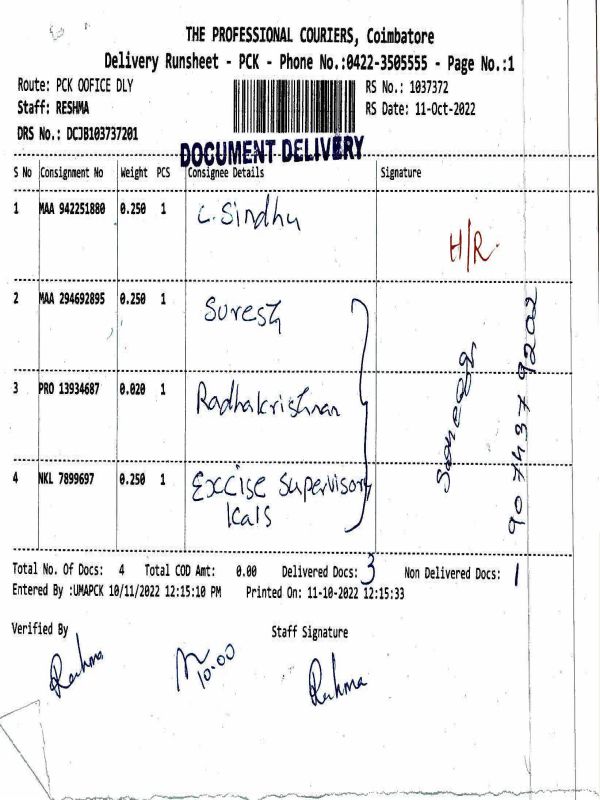 THE PROFESSIONAL COURIERS, Coimbatore
Delivery Runsheet - PCK - Phone No.:0422-3505555 - Page No.:1
Route: PCK OOFICE DLY
RS No.: 1037372
Staff: RESHMA
RS Date: 11-Oct-2022
DRS No.: DCJB103737201
DOCUMENT DELIVERY
S No Consignment No Weight PCS Consignee Details Signature
1 MAA 942251880 0.250 1 C. Sindhu H/R
2 MAA 294692895 0.250 1 Suresh
3 PRO 13934687 0.020 1 Radhakrishnan
4 NKL 7899697 0.250 1 Excise Supervisory
Kals
Total No. Of Docs: 4 Total COD Amt: 0.00 Delivered Docs: 3 Non Delivered Docs: 1
Entered By :UMAPCK 10/11/2022 12:15:10 PM Printed On: 11-10-2022 12:15:33
Verified By Staff Signature
10.00